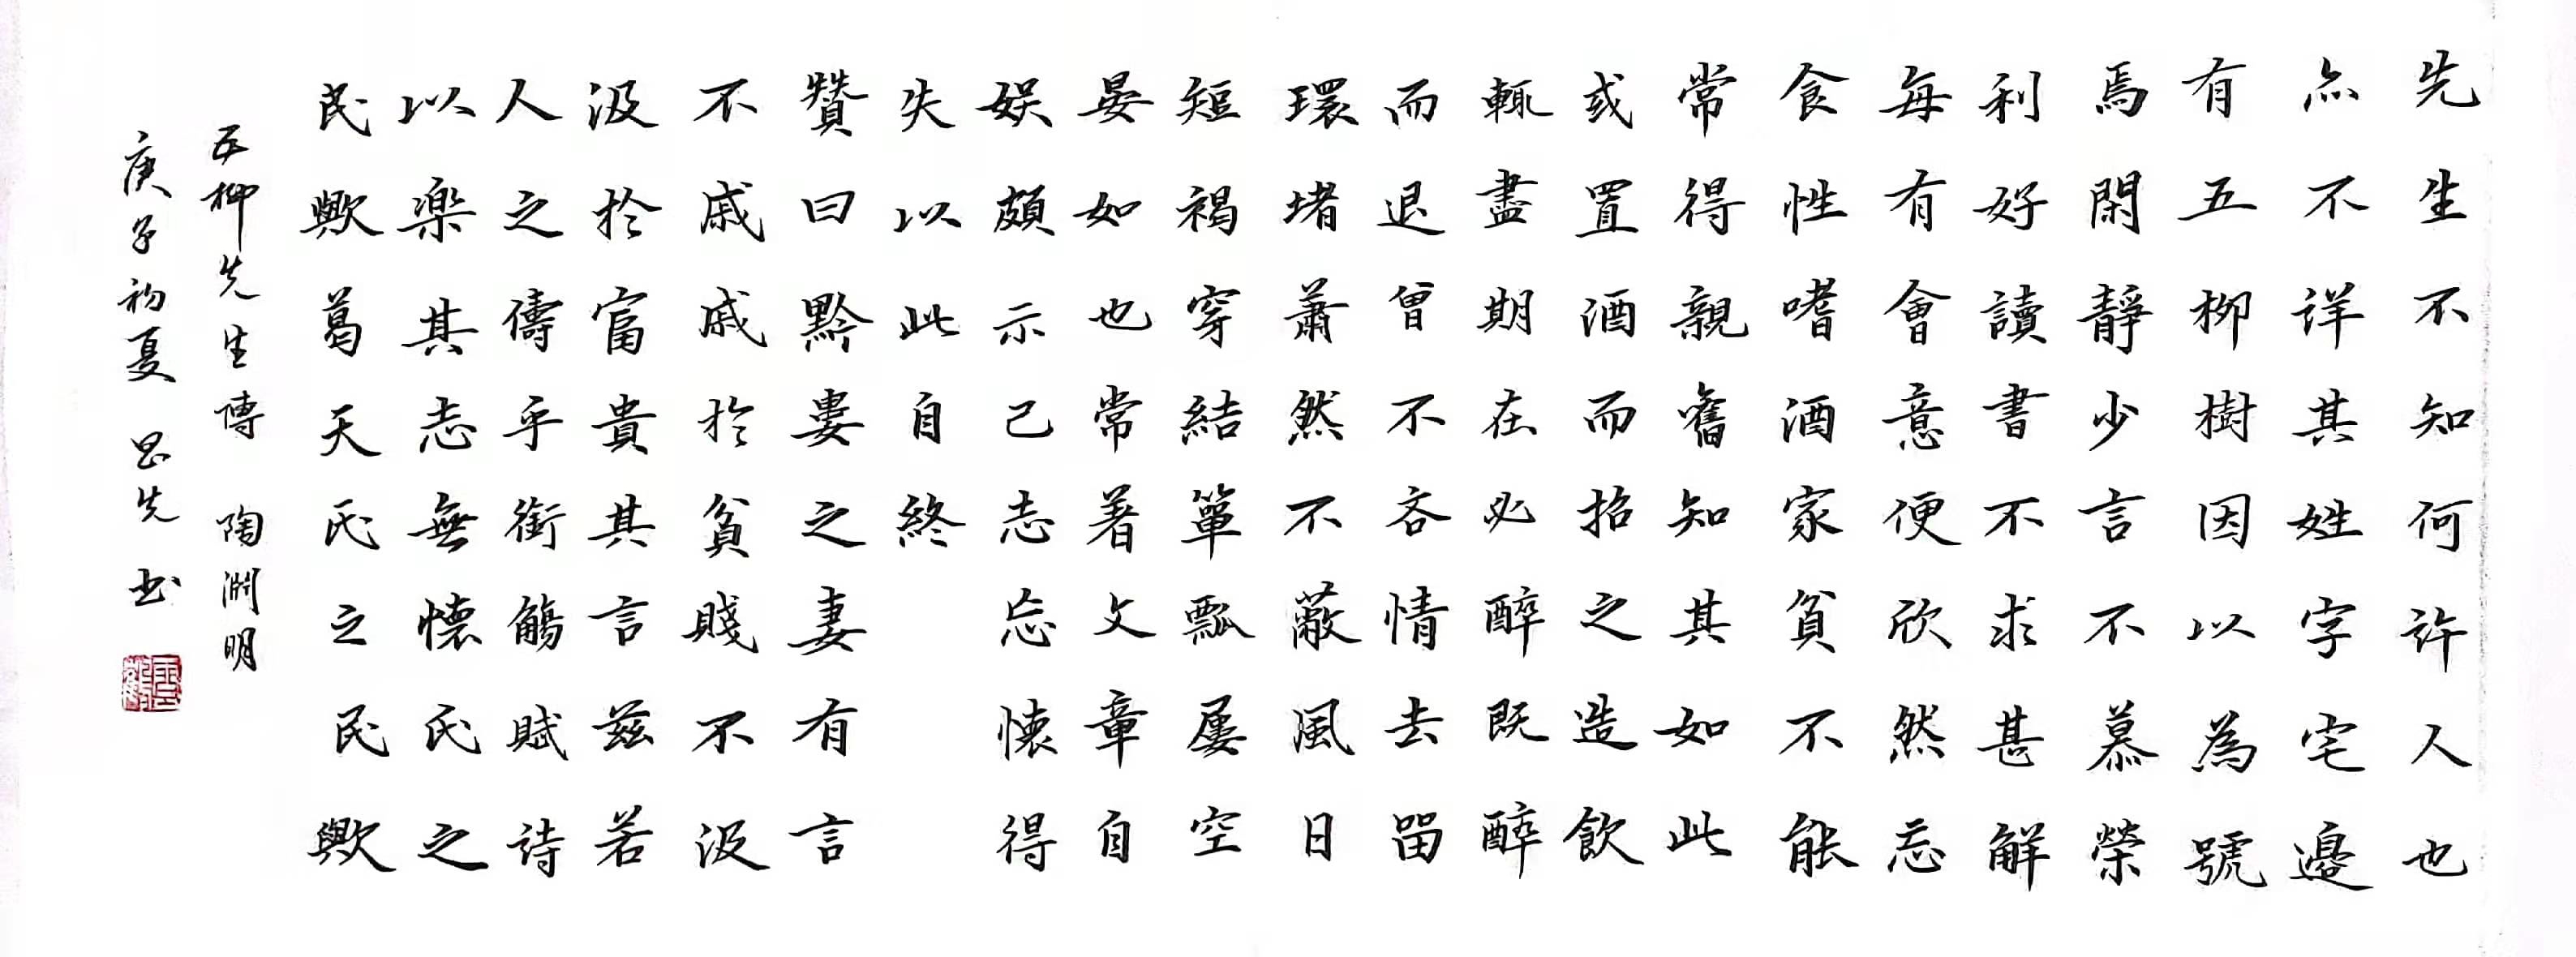 先生不知何許人也
亦不詳其姓字宅邊
有五柳樹因以為號
焉閑靜少言不慕榮
利好讀書不求甚解
每有會意便欣然忘
食性嗜酒家貧不能
常得親舊知其如此
或置酒而招之造飲
輒盡期在必醉既醉
而退曾不吝情去留
環堵蕭然不蔽風日
短褐穿結簞瓢屢空
晏如也常著文章自
娛頗示己志忘懷得
失以此自終
贊曰黔婁之妻有言
不戚戚於貧賤不汲
汲於富貴其言茲若
人之儔乎銜觴賦詩
以樂其志無懷氏之
民歟葛天氏之民歟
五柳先生傳 陶淵明
庚子初夏 先书